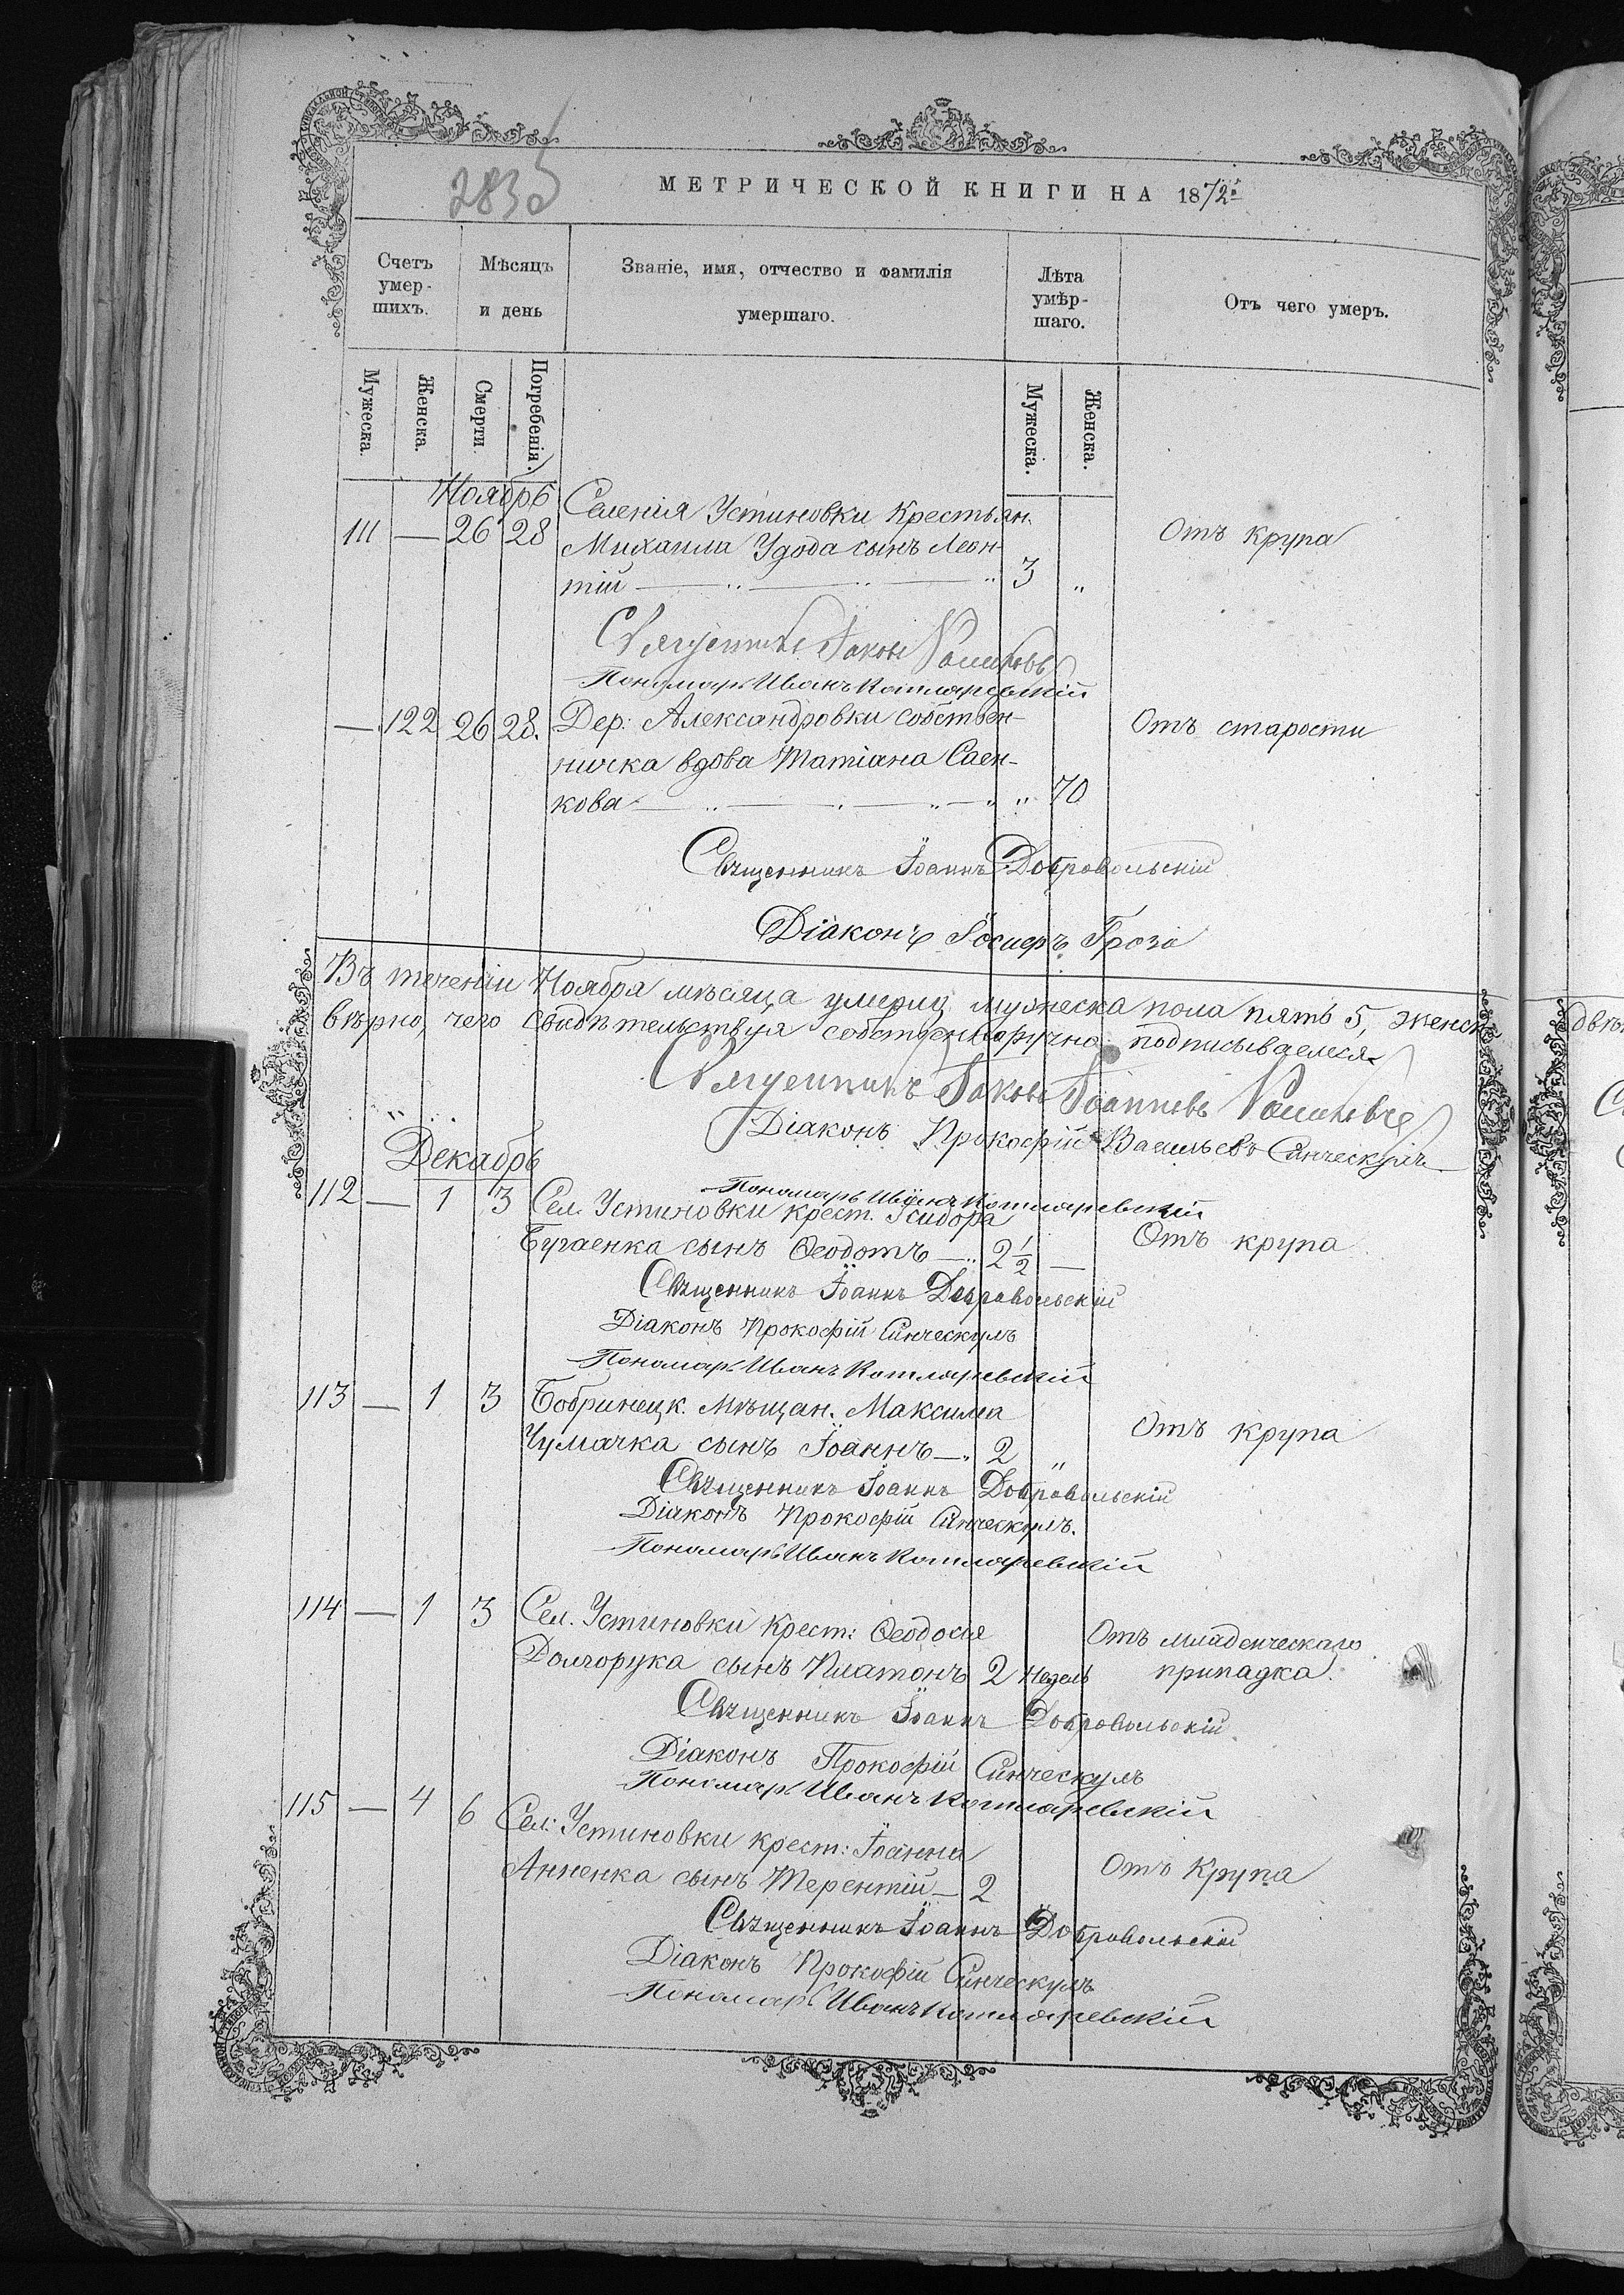 283
МЕТРИЧЕСКОЙ КНИГИ НА 1872 г.
Счетъ умер-шихъ. Мѣсяцъ и день Званіе, имя, отчество и фамилія умершаго. Лѣта умѣр-шаго. Отъ чего умеръ.
Мужеска. Женска. Смерти. Погребенія. Мужеска. Женска.
Ноябрь
111 — 26 28 Селенія Устиновки Крестьян.
Михаила Удода сынъ Леон- Отъ крупа
тій 3 „
Священникъ Іаковъ
Пономарь Иванъ Котляревскій
— 122 26 28. Дер: Александровки собствен- Отъ старости
ничка вдова Татіана Саен-
кова „ 70
Священникъ Іоаннъ Добровольскій
Діаконъ Іосифъ Гроза
Въ теченіи Ноября мѣсяца умерш. мужеска пола пять 5, женск
вѣрно, чего свидѣтельствуя собственноручно подписываемся
Священникъ Іаковъ Іоанновъ
Діаконъ Прокофій Васильевъ Синческулъ
Пономарь Иванъ Котляревскій
Декабрь
112 — 1 3 Сел. Устиновки крест. Ісидора
Бугаенка сынъ Ѳеодотъ — 2 1/2 — Отъ крупа
Священникъ Іоаннъ Добровольскій
Діаконъ Прокофій Синческулъ
Пономарь Иванъ Котляревскій
113 — 1 3 Бобринецк. мѣщан. Максима
Чумачка сынъ Іоаннъ — 2 „ Отъ крупа
Священникъ Іоаннъ Добровольскій
Діаконъ Прокофій Синческулъ.
Пономарь Иванъ Котляревскій
114 — 1 3 Сел. Устиновки крест: Ѳеодосія Отъ младенческаго
Долгорука сынъ Платонъ 2 недѣль припадка.
Священникъ Іоаннъ Добровольскій
Діаконъ Прокофій Синческулъ
Пономарь Иванъ Котляревскій
115 — 4 6 Сел: Устиновки крест: Іоанна
Анненка сынъ Терентій — 2 Отъ Крупа
Священникъ Іоаннъ Добровольскій
Діаконъ Прокофій Синческулъ
Пономарь Иванъ Котляревскій